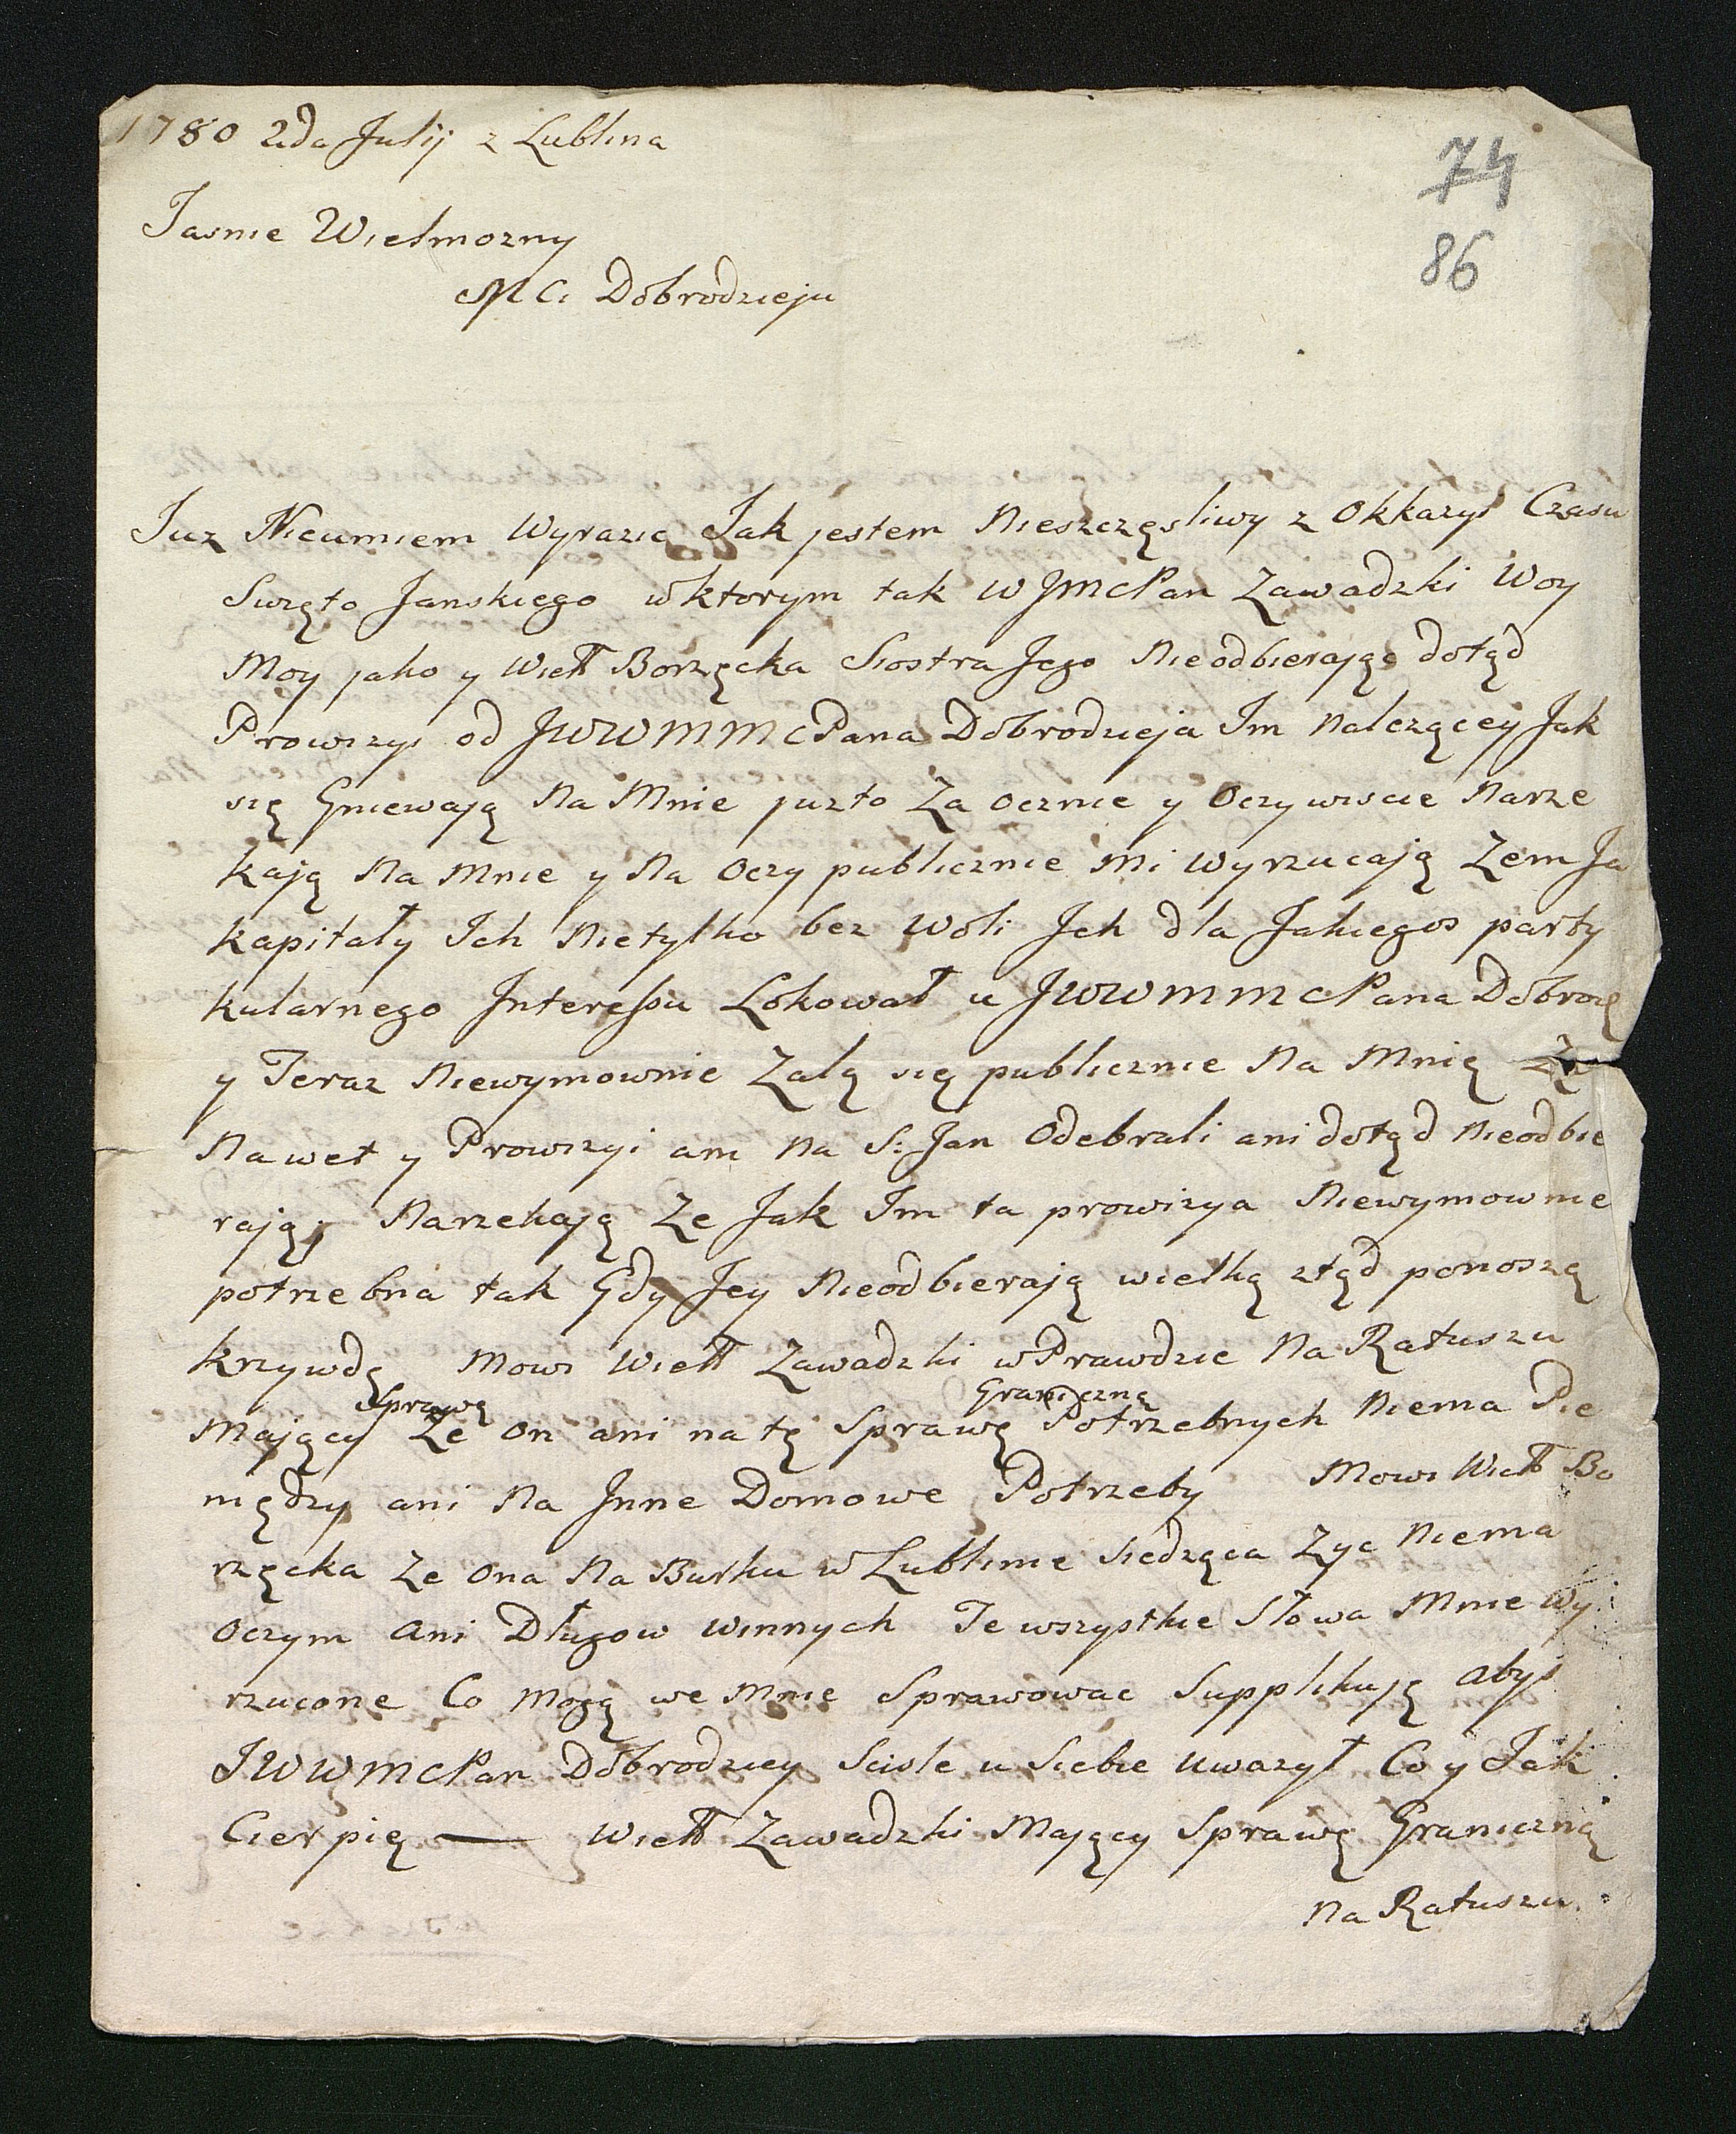 1780 2da Julij z Lublina
74
Jasnie Wielmozny
86
M Ci Dobrodzieju
Juz Nieumiem Wyrazic Jak jestem Nieszczęsliwy z Okkazyi Czasu
Swięto Janskiego wktorym tak WJMCPan Zawadzki Woy
Moy jako y Wiel Borzęcka Siostra Jego Nieodbierając dotąd
Prowizyi od JWWMMCPana Dobrodzieja Im Nalezącey Jak
się Gniewają Na Mnie juzto Za Ocznie y Oczywiscie Narze
kają Na Mnie y Na Oczy publicznie Mi Wyrzucają Zem Ja
Kapitały Ich Nietylko bez Woli Jch dla Jakiegos party
kularnego Interessu Lokował u JWWMMCPana Dobrodz
y Teraz Niewymownie Zalą się publicznie Na Mnię Ze
Nawet y Prowizyi ani Na S: Jan Odebrali ani dotąd Nieodbie
rają, Narzekają Ze Jak Im ta prowizya Niewymownie
potrzebna tak Gdy Jey Nieodbierają wielką ztąd ponoszą
Krzywdę Mowi Wiel Zawadzki wPrawdzie Na Ratuszu
Sprawę Graniczną
Mający Ze On ani na tę Sprawę Potrzebnych Niema Pie
niędzy ani Na Inne Domowe Potrzeby Mowi Wiel Bo
rzęcka Ze Ona Na Burku w Lublinie Siedząca Zyc Niema
Oczym Ani Długow Winnych Te wszystkie Słowa Mnie Wy
rzucone Co Mogą we Mnie Sprawowac Supplikuję Abyś
JWWMCPan Dobrodziey Scisle u Siebie Uwazył Co y Jak
Cierpię — Wiel Zawadzki Mający Sprawę Graniczną
Na Ratuszu